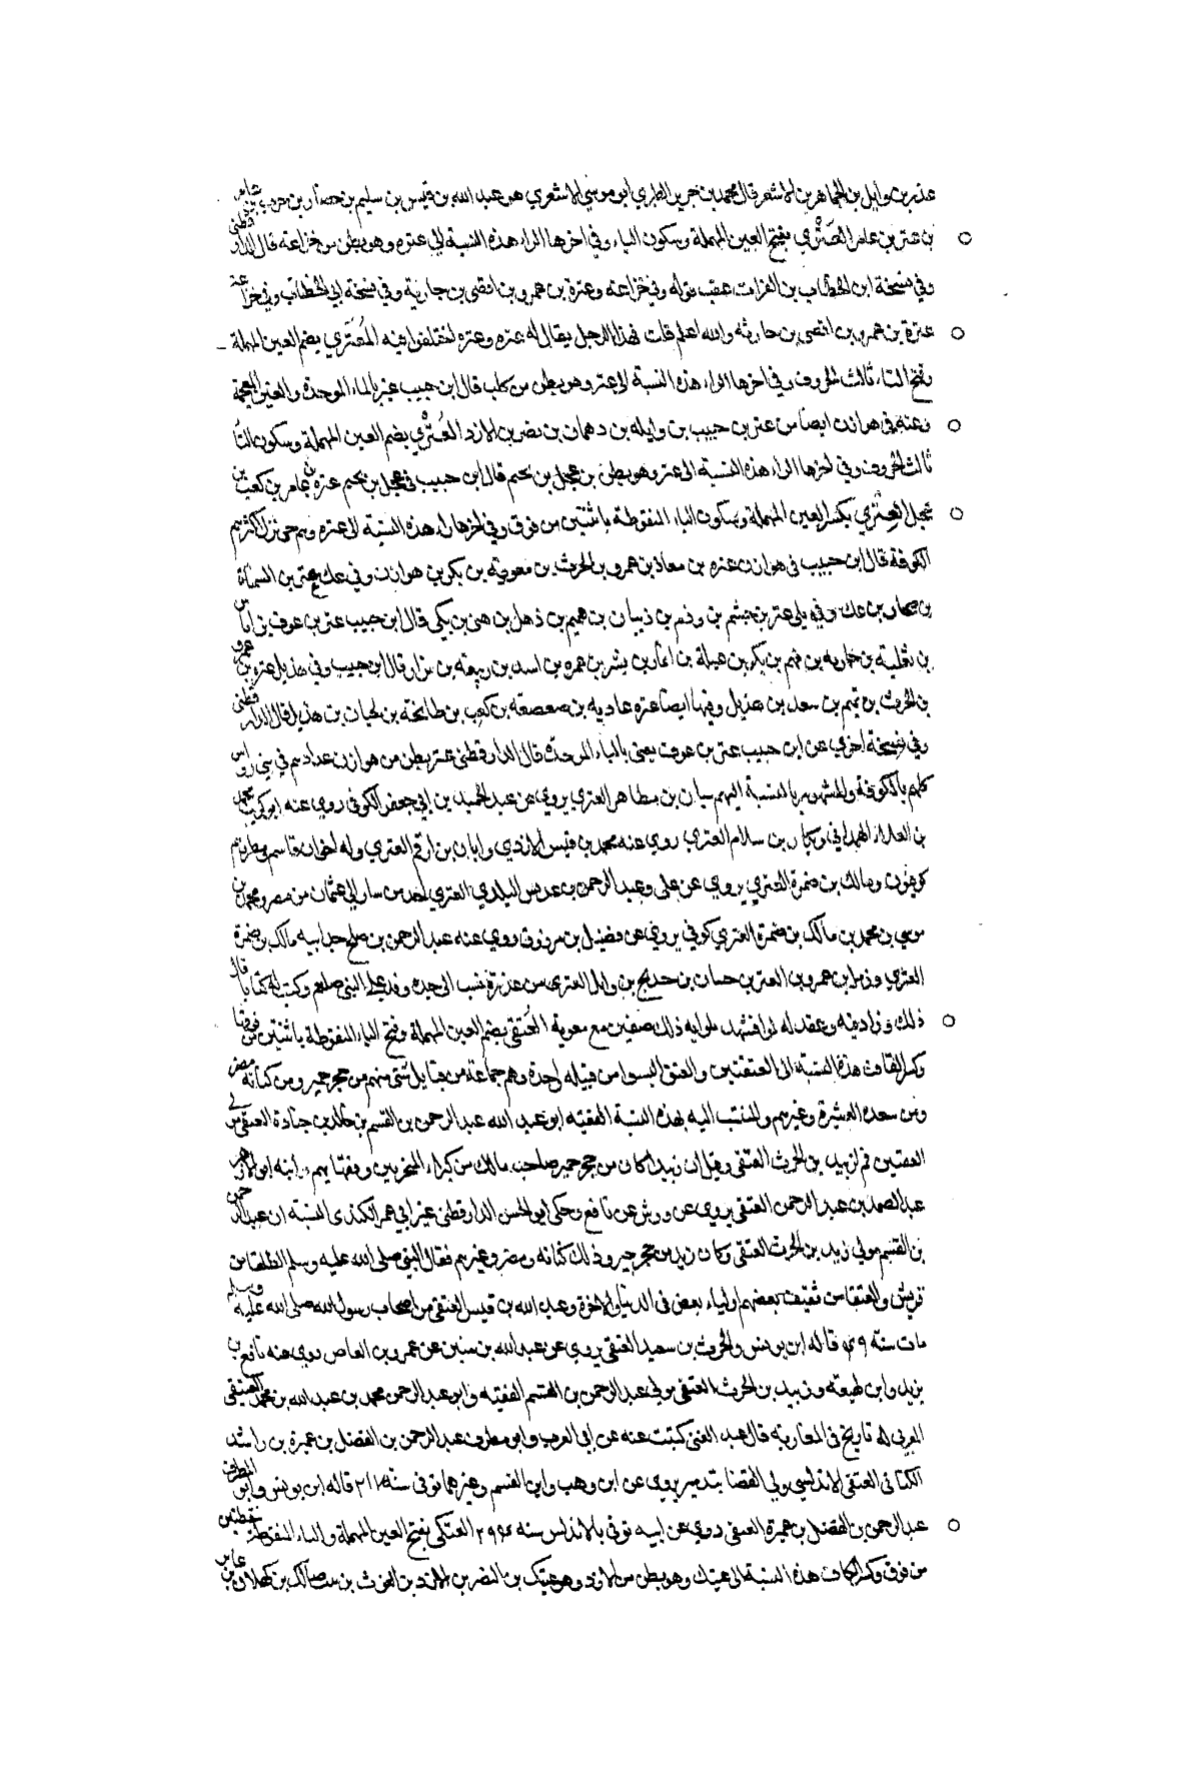 عذر بن وايل بن الجماهر بن الاشعر قال محمد بن جرير الطبري ابو موسي الاشعري هو عبد الله بن قيس بن سليم بن حضار بن حرب بن عامر
بن عتر بن عامر العَتْري بفتح العين المهملة وسكون التاء وفي اخرها الراء هذه النسبة الي عتره وهو بطن من خزاعة قال الدارقطني
وفي نسخة ابن الخطاب بن الفرات عقب قوله وفي خزاعه وعترة بن عمرو بن افصى بن حارثة وفي نسخة ابي الخطاب وفي خزاعة
عنزة بن عمرو بن افصى بن حارثه والله اعلم قلت فهذا الرجل يقال له عنزه وعتره اختلفوا فيه العُتَري بضم العين المهملة
وفتح التاء ثالث الحروف وفي اخرها الراء هذه النسبة الي عتر وهو بطن من كلب قال ابن حبيب غبر بالباء الموحدة والغين المعجمة
وعنه في هوازن ايضا من عتر بن حبيب بن وايله بن دهمان بن نصر بن الازد العُتْري بضم العين المهملة وسكون التا
ثالث الحروف وفي اخرها الراء هذه النسبة الي عتر وهو بطن من عجل بن لجيم قال ابن حبيب في عجل بن لجيم عتره بن عامر بن كعب بن
عجل العِتْري بكسر العين المهملة وسكون التاء المنقوطة باثنتين من فوق وفي اخرها راء هذه النسبة الي عتره وهم حي نزل اكثرهم
الكوفة قال ابن حبيب في هوازن عتره بن معاذ بن عمرو بن الحرث بن معوية بن بكر بن هوازن وفي عك عتر بن السماة
بن صحار بن عك وفي بلي عتر بن جشم بن وذم بن ذبيان بن هميم بن ذهل بن هني بن بلى قال ابن حبيب عتر بن عوف بن اياس
بن ثعلبة بن جاريه بن فهم بن بكر بن عبلة بن انمار بن بشر بن عمره بن اسد بن ربيعة بن نزار قال ابن حبيب وفي هذيل عتره بن عمرو
بن الحرث بن تميم بن سعد بن هذيل وفيها ايضا عتره عاديه بن صعصعه بن كعب بن طابخة بن لحيان بن هذيل قال الدارقطني
وفي نسخة اخري عن ابن حبيب عتر بن عوف يعني بالتاء الموحدة قال الدارقطني عتر بطن من هوازن عدادهم في بني رواس
كلهم بالكوفة والمشهور بالنسبة اليهم سيان بن مظاهر العتري يروي عن عبد الحميد بن ابي جعفر الكوفي روي عنه ابو كريب محمد
بن العلاء الهمداني وبكار بن سلام العتري روي عنه محمد بن قيس الازدي وابان بن ارقم العتري وله اخوان قاسم ومطر هم
كوفيون ومالك بن ضمرة العتري يروي عن علي وعبد الرحمن بن عديس البلوي العتري احد من سار الي عثمان من مصر ومحمد بن
موسي بن محمد بن مالك بن ضمرة العتري كوفي يروي عن فضيل بن مرزوق روي عنه عبد الرحمن بن صلح جد ابيه مالك بن ضمرة
العتري وزمل بن عمرو بن العتر بن حسان بن حديج بن وايل العتري من عذرة نسب الي جده وفد علي النبي صلعم وكتب له كتابا قال
ذلك وزاد فيه وعقد له لوا فشهد بلوايه ذلك صفين مع معوية العُتَقي بضم العين المهملة وفتح التاء المنقوطة باثنتين من فوقها
وكسر القاف هذه النسبة الى العتقيين والعتق ليسوا من قبيله واحدة وهم جماعة من قبايل شتى منهم من حجر حمير ومن كنانة مضر
ومن سعد العشيرة وغيرهم والمنتسب اليه بهذه النسبة الفقيه ابو عبد الله عبد الرحمن بن القسم بن خالد بن جنادة العتقي من
العتقيين ثم لزبيد بن الحرث العتقي وقيل ان زبيدا كان من حجر حمير صاحب مالك من كبراء المصريين وفقهايهم وابنه ابو الازهر
عبد الصمد بن عبد الرحمن العتقي يروي عن ورش عن نافع وحكي ابو الحسن الدارقطني عن ابي عمر الكندي النسبة ان عبد الرحمن
بن القسم مولي زبيد بن الحرث العتقي وكان زبيد من حجر حمير وذلك كنانه ومضر وغيرهم فقال النبي صلى الله عليه وسلم الطلقا من
قريش والعتقا من ثقيف بعضهم اولياء بعض في الدنيا والاخرة وعبد الله بن قيس العتقي من اصحاب رسول الله صلى الله عليه وسلم
مات سنة ٤٩ قاله ابن يونس والحرث بن سعيد العتقي يروي عن عبد الله بن منين عن عمرو بن العاص روي عنه نافع بن
يزيد وابن لهيعه وزبيد بن الحرث العتقي مولي عبد الرحمن بن القسم الفقيه وابو عبد الرحمن محمد بن عبد الله بن محمد العتقي
المغربي له تاريخ في المغاربة قال عبد الغني كتبت عنه عن ابي العرب وابو مطرف عبد الرحمن بن الفضل بن عميرة بن راشد
الكناني العتقي الاندلسي ولي القضا بتدمير يروي عن ابن وهب وابن القسم وغيرهما توفي سنه ٢١٧ قاله ابن يونس وابو المطرف
عبد الرحمن بن الفضل بن عميرة العتقي روي عن ابيه توفي بالاندلس سنه ٢٩٤ العتكي بفتح العين المهملة والتاء المنقوطة بنقطتين
من فوق وكسر الكاف هذه النسبة الى عتيك وهو بطن من الازد وهو عتيك بن النضر بن الازد بن الغوث بن نبت بن مالك بن كهلان بن عابر